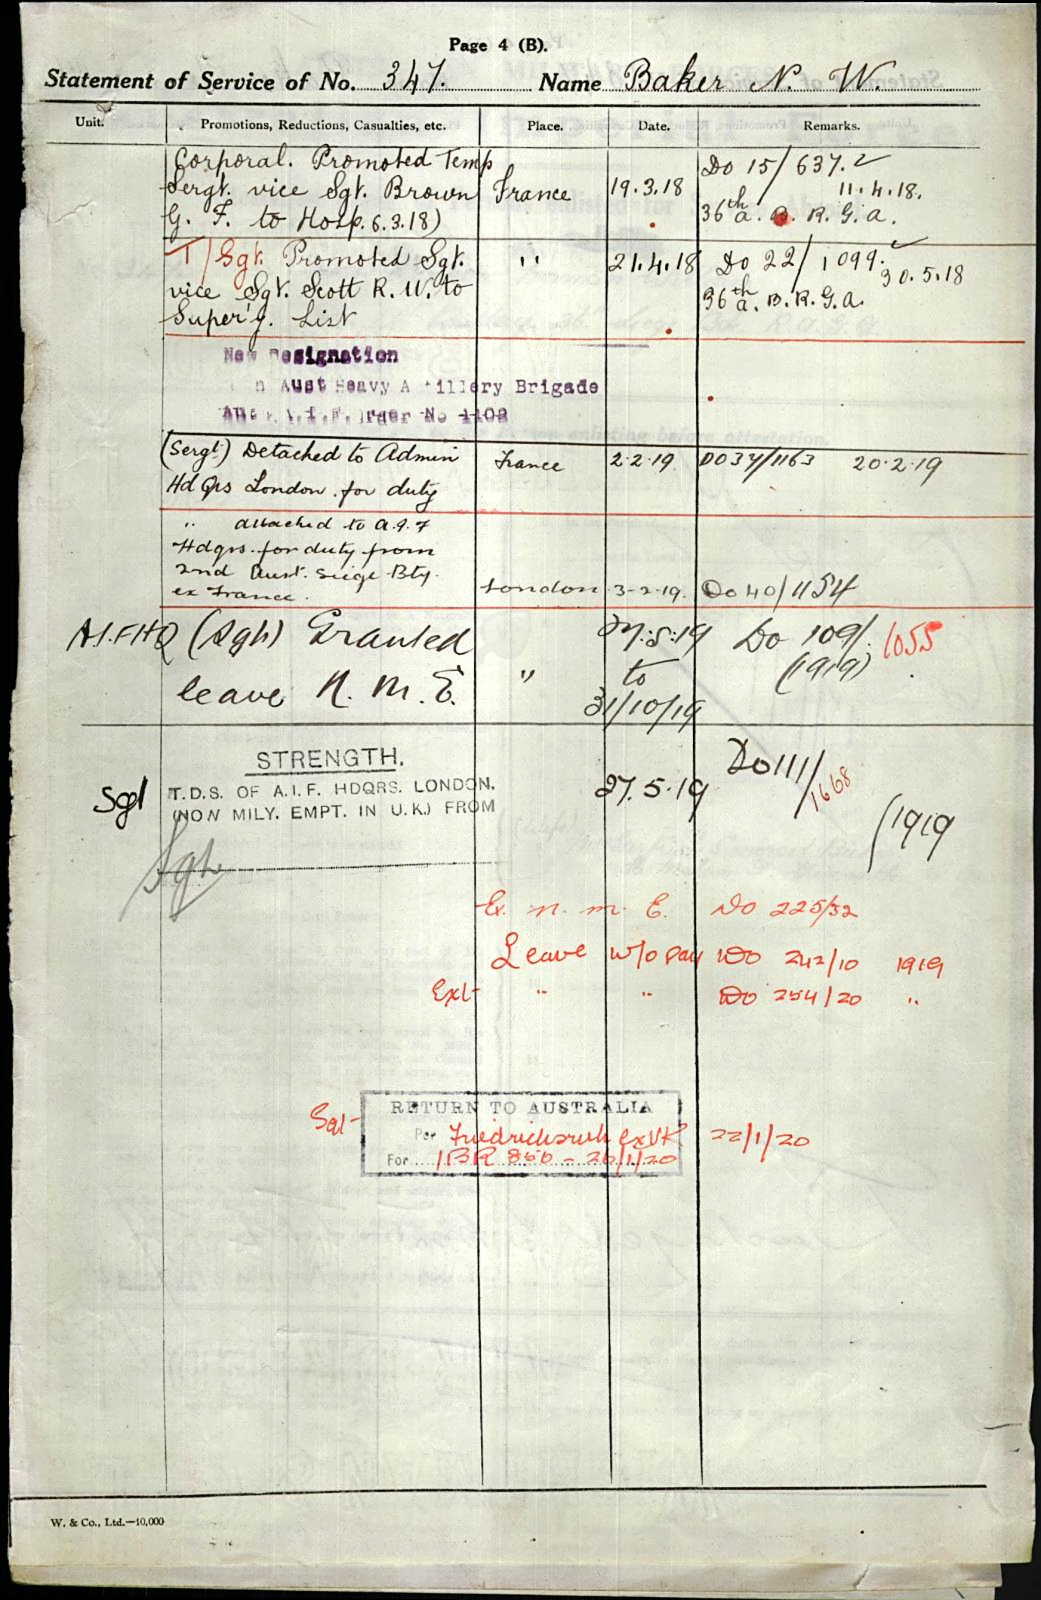 Page 4 (B).
Statement of Service of No. 347. Name Baker N. W.
Unit. Promotions, Reductions, Casualties, etc. Place. Date. Remarks.
Corporal. Promoted Temp Do 15/637.
Sergt. vice Sgt. Brown France 19.3.18 11.4.18.
G. F. to Hosp. 6.3.18) 36th A. B. R. G. A.
T/Sgt. Promoted Sgt. " 21.4.18 Do 22/1099.
vice Sgt. Scott R. W. to 30.5.18
Super'y. List 36th A. B. R. G. A.
New Designation
Aust Heavy Artillery Brigade
A.I.F. Order No 1102
(Sergt) Detached to Admin France 2.2.19 DO 37/1163 20.2.19
Hd Qrs London. for duty
" attached to A.I.F
Hdqrs. for duty from
2nd Aust. Siege Bty.
ex France. London 3-2-19. Do 40/1154
A.I.F.HQ (Sgt) Granted 27.5.19 Do 109/1055
leave N. M. E. " to (1919)
31/10/19
STRENGTH.
Sgt T.D.S. OF A.I.F. HDQRS. LONDON. 27.5.19 Do 111/1668
(NON MILY. EMPT. IN U.K.) FROM (1919
Sgt.
Ex. N. M. E. Do 225/32
Leave w/o pay Do 242/10 1919
Ext " " Do 254/20 "
RETURN TO AUSTRALIA
Sgt Per Friedrichsruh Ex UK 22/1/20
For
W. & Co., Ltd.—10,000